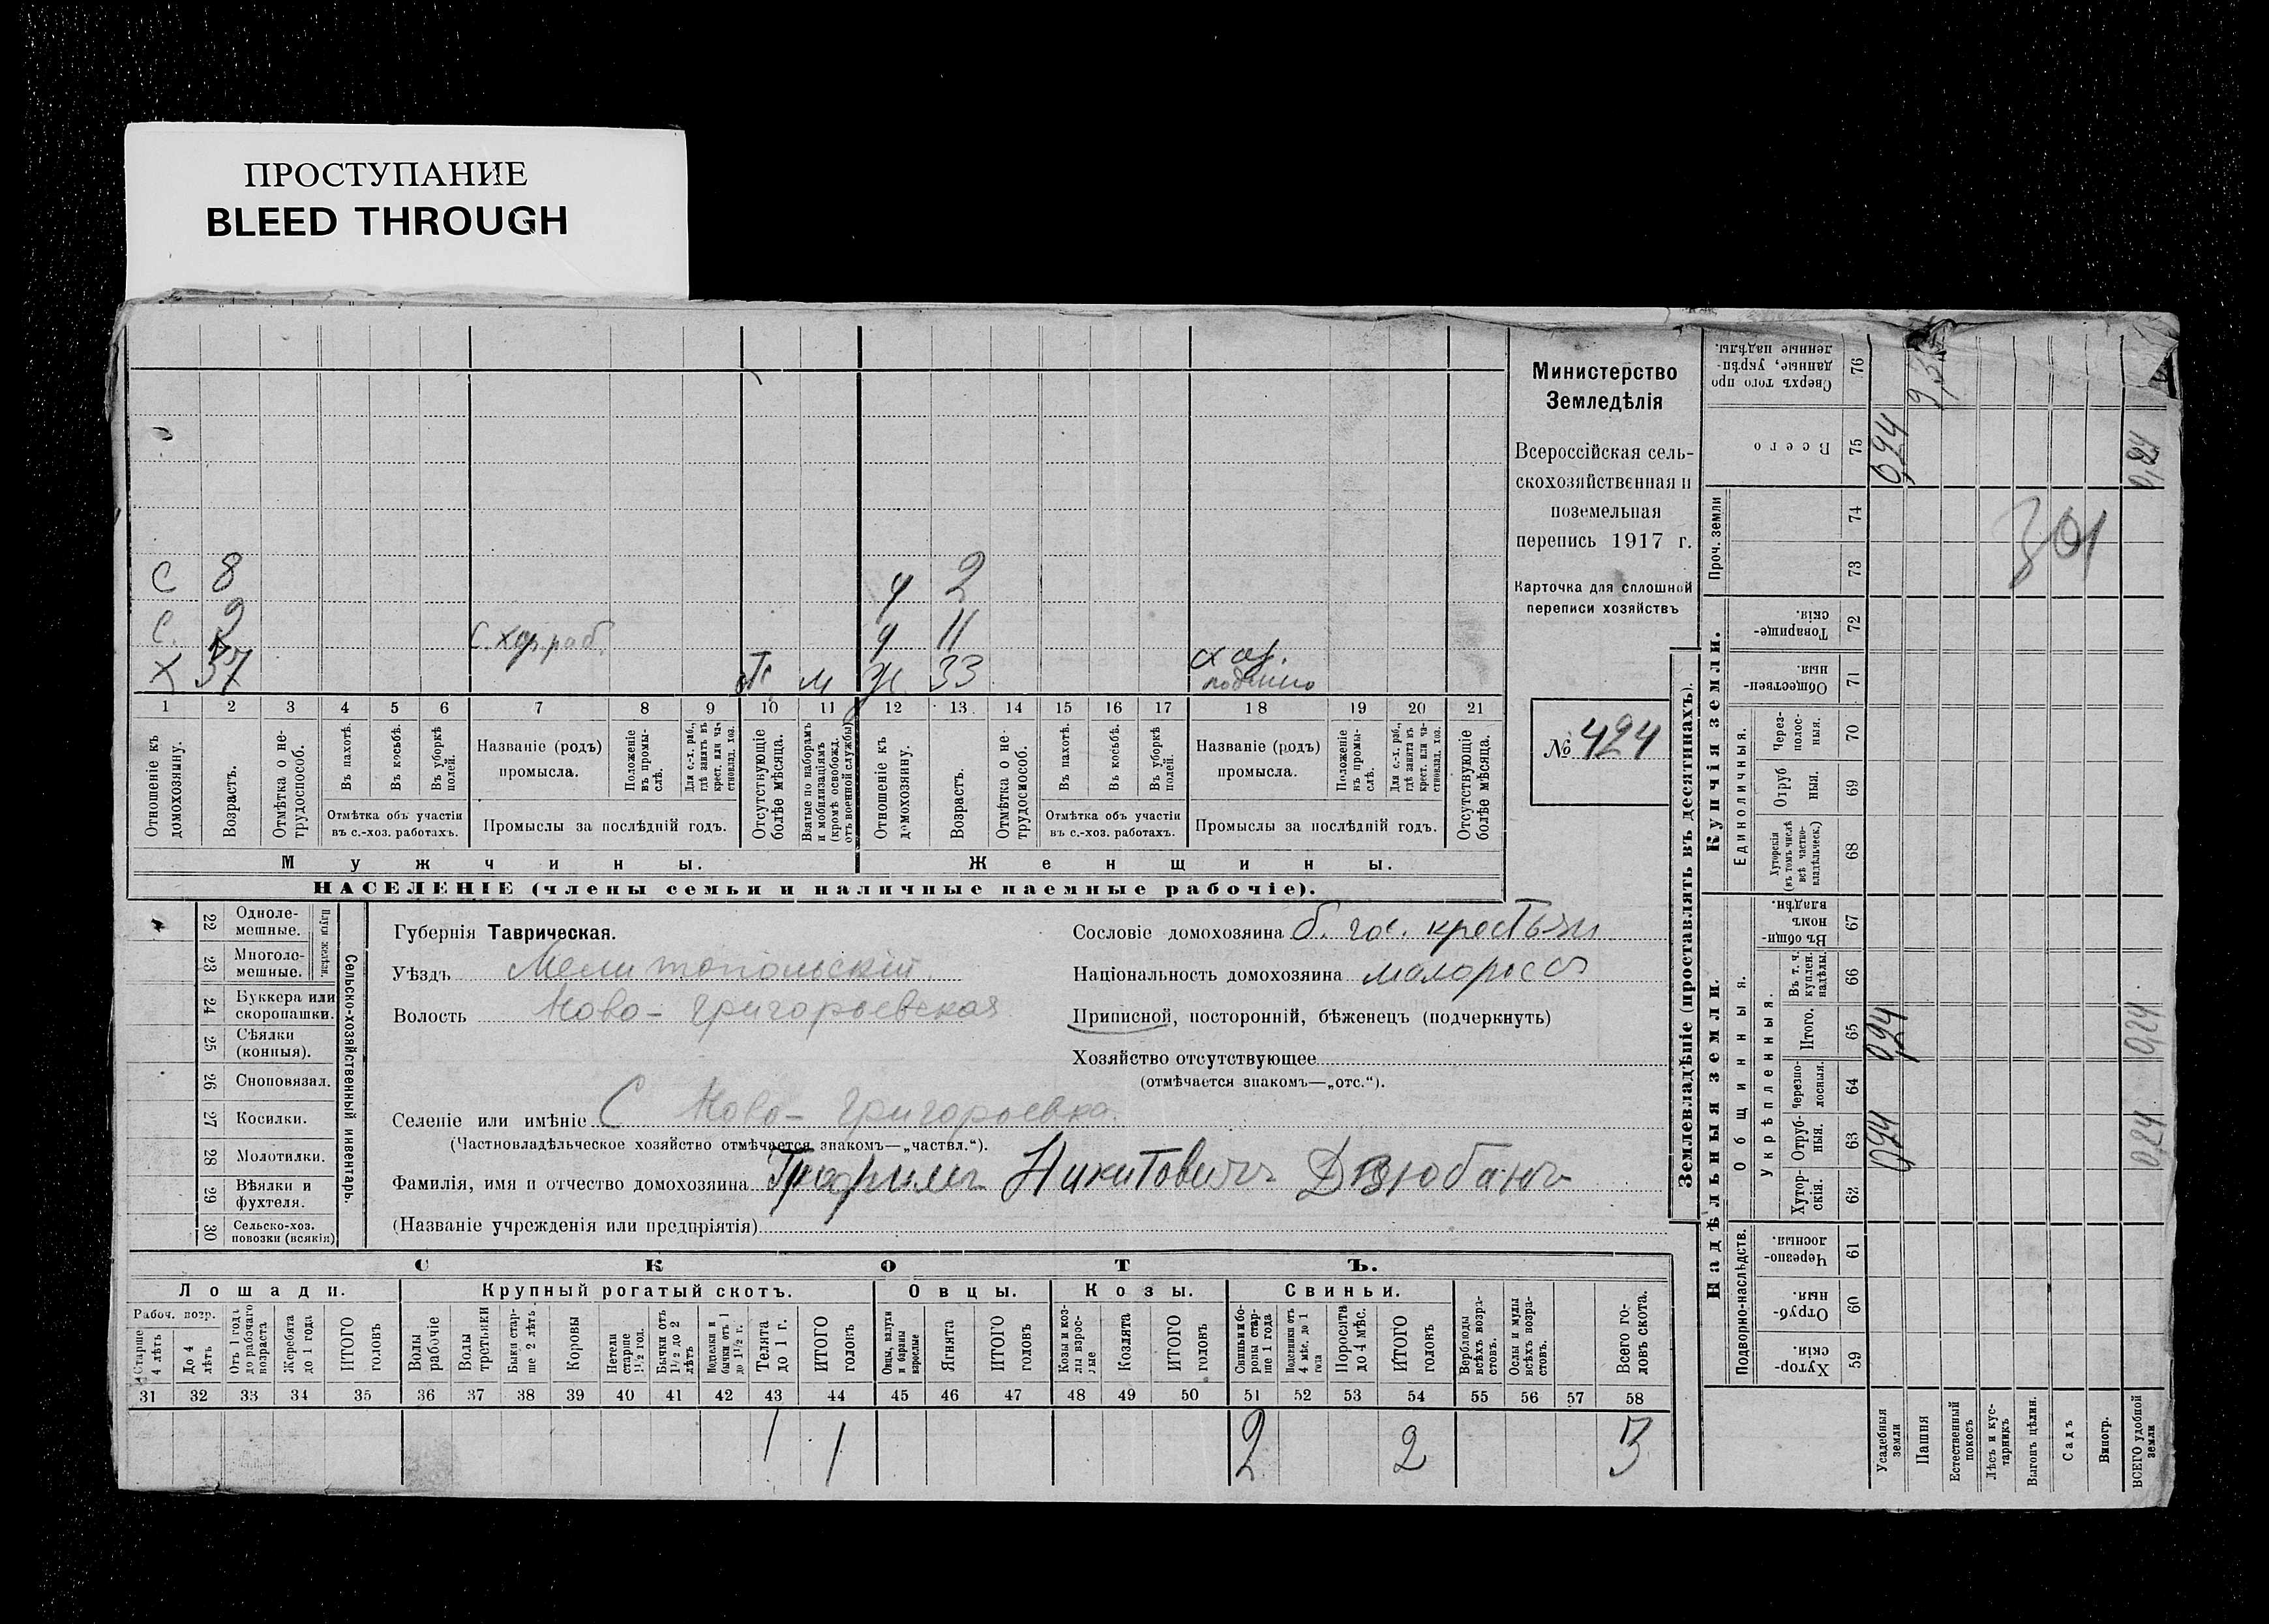 ПРОСТУПАНИЕ
BLEED THROUGH
С 8 ч 2
С. 9 С. Хоз. раб. ч 11
Х 37 от. м ж 33 с хоз.
1 2 3 4 5 6 7 8 9 10 11 12 13 14 15 16 17 18 19 20 21
Отношеніе къ домохозяину.
Возрастъ.
Отмѣтка о нетрудоспособ.
Въ пахотѣ.
Въ косьбѣ.
Въ уборкѣ полей.
Отмѣтка объ участіи въ с.-хоз. работахъ.
Названіе (родъ) промысла.
Положеніе въ промыслѣ.
Для с.-х. раб., гдѣ занятъ въ крест. или частновлад. хоз.
Промыслы за послѣдній годъ.
Отсутствующіе болѣе мѣсяца.
Взятые по наборамъ и мобилизаціямъ (кромѣ освобожд. отъ военной службы)
Отношеніе къ домохозяину.
Возрастъ.
Отмѣтка о нетрудоспособ.
Въ пахотѣ.
Въ косьбѣ.
Въ уборкѣ полей.
Отмѣтка объ участіи въ с.-хоз. работахъ.
Названіе (родъ) промысла.
Положеніе въ промыслѣ.
Для с.-х. раб., гдѣ занята въ крест. или частновлад. хоз.
Промыслы за послѣдній годъ.
Отсутствующіе болѣе мѣсяца.
Мужчины. Женщины.
НАСЕЛЕНІЕ (члены семьи и наличные наемные рабочіе).
Министерство
Земледѣлія
Всероссійская сель-
скохозяйственная и
поземельная
перепись 1917 г.
Карточка для сплошной
переписи хозяйствъ
№ 424
22 Одноле-мешные.
23 Многоле-мешные.
Плуги желѣзн.
24 Буккера или скоропашки.
25 Сѣялки (конныя).
26 Сноповязал.
27 Косилки.
28 Молотилки.
29 Вѣялки и фухтеля.
30 Сельско-хоз. повозки (всякія)
Сельско-хозяйственный инвентарь.
Губернія Таврическая.
Уѣздъ Мелитопольскій
Волость Ново-Григорьевская
Сословіе домохозяина б. гос. крестьян
Національность домохозяина малороссъ
Приписной, посторонній, бѣженецъ (подчеркнуть)
Хозяйство отсутствующее
(отмѣчается знакомъ—„отс.“).
Селеніе или имѣніе С Ново-Григорьевка.
(Частновладѣльческое хозяйство отмѣчается знакомъ—„частвл.“).
Фамилія, имя и отчество домохозяина Трофимъ Никитовичъ Дзюбанъ
(Названіе учрежденія или предпріятія)
СКОТЪ.
Лошади. Крупный рогатый скотъ. Овцы. Козы. Свиньи.
Рабоч. возр.
Старше 4 лѣтъ
До 4 лѣтъ
Отъ 1 года до рабочаго возраста
Жеребята до 1 года
ИТОГО головъ
Волы рабочіе
Волы третьяки
Быки старше 2 лѣтъ.
Коровы
Нетели старше 1½ год.
Бычки отъ 1½ до 2 лѣтъ
Нетельки и бычки отъ 1 до 1½ г.
Телята до 1 г.
ИТОГО головъ
Овцы, валухи и бараны взрослые
Ягнята
ИТОГО головъ
Козы и козлы взрослые
Козлята
ИТОГО головъ
Свиньи и боровы старше 1 года
Подсвинки отъ 4 мѣс. до 1 года
Поросята до 4 мѣс.
ИТОГО головъ
Верблюды всѣхъ возрастовъ.
Ослы и мулы всѣхъ возрастовъ.
Всего головъ скота.
31 32 33 34 35 36 37 38 39 40 41 42 43 44 45 46 47 48 49 50 51 52 53 54 55 56 57 58
1 1 2 2 3
Землевладѣніе (проставлять въ десятинахъ).
Надѣльныя земли. Купчія земли.
Подворно-наслѣдств.
Общинныя.
Укрѣпленныя.
Единоличныя.
Проч. земли
Хутор-скія. 59
Отруб-ныя. 60
Черезпо-лосныя. 61
Хутор-скія. 62
Отруб-ныя. 63
Черезпо-лосныя. 64
Итого. 65
Въ т. ч. куплен. надѣлы. 66
Въ общин-номъ владѣн. 67
Хуторскія (въ томъ числѣ всѣ частно-владѣльческ.) 68
Отруб ныя. 69
Через-полос-ныя. 70
Обществен-ныя. 71
Товарище-скія. 72
73
74
Всего 75
Сверхъ того проданные, укрѣп-ленные надѣлы. 76
Усадебныя земли 0,24 0,24 0,24
Пашня
Естественный покосъ
Лѣсъ и кус-тарникъ
Выгонъ цѣлин.
Садъ
Виногр.
ВСЕГО удобной земли 0,24 0,24 0,24
301